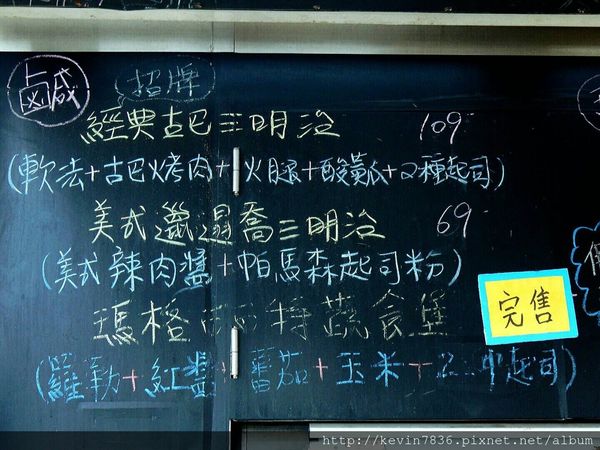 鹹 招牌
經典古巴三明治 109
(軟法+古巴烤肉+火腿+酸黃瓜+2種起司)
美式邋遢喬三明治 69
(美式辣肉醬+帕馬森起司粉)
瑪格 特蔬食堡
完售
(羅勒+紅醬+蕃茄+玉米+ 起司)
http://kevin7836.pixnet.net/album